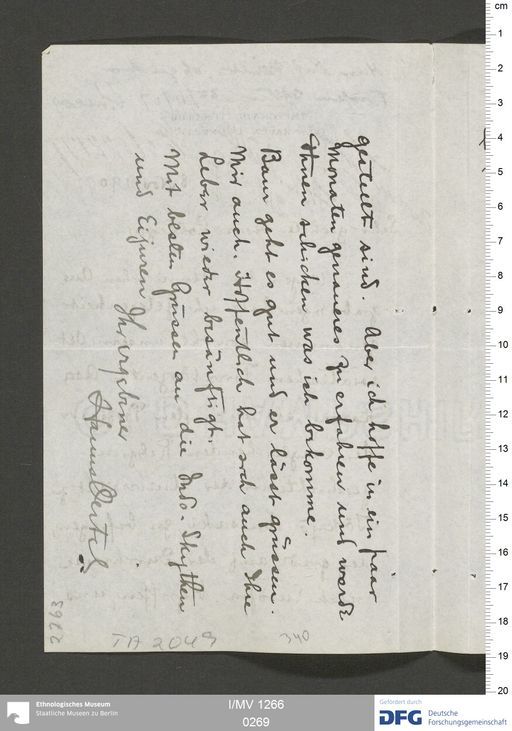 gestellt sind. Aber ich hoffe in ein paar
Monaten genaueres zu erfahren und werde
Ihnen schicken was ich bekomme.
Baur geht es gut und er lässt grüssen.
Mir auch. Hoffentlich hat sich auch Ihre
Leber wieder besänftigt.
Mit besten Grüssen an die Indo-Skythen
und Eijuren Ihr ergebener
Hanns Oertel
2263
TA 2049
340
cm
1
2
3
4
5
6
7
8
9
10
11
12
13
14
15
16
17
18
19
20
Ethnologisches Museum
Staatliche Museen zu Berlin
I/MV 1266
0269
Gefördert durch
DFG Deutsche
Forschungsgemeinschaft